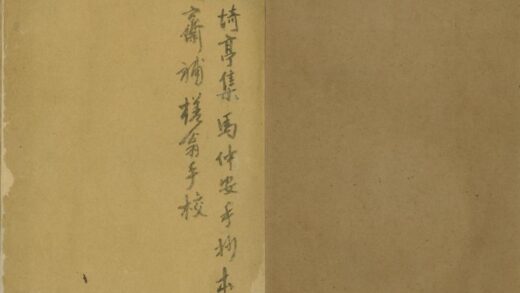 埼亭集馬仲安手抄本
齋補槎翁手校